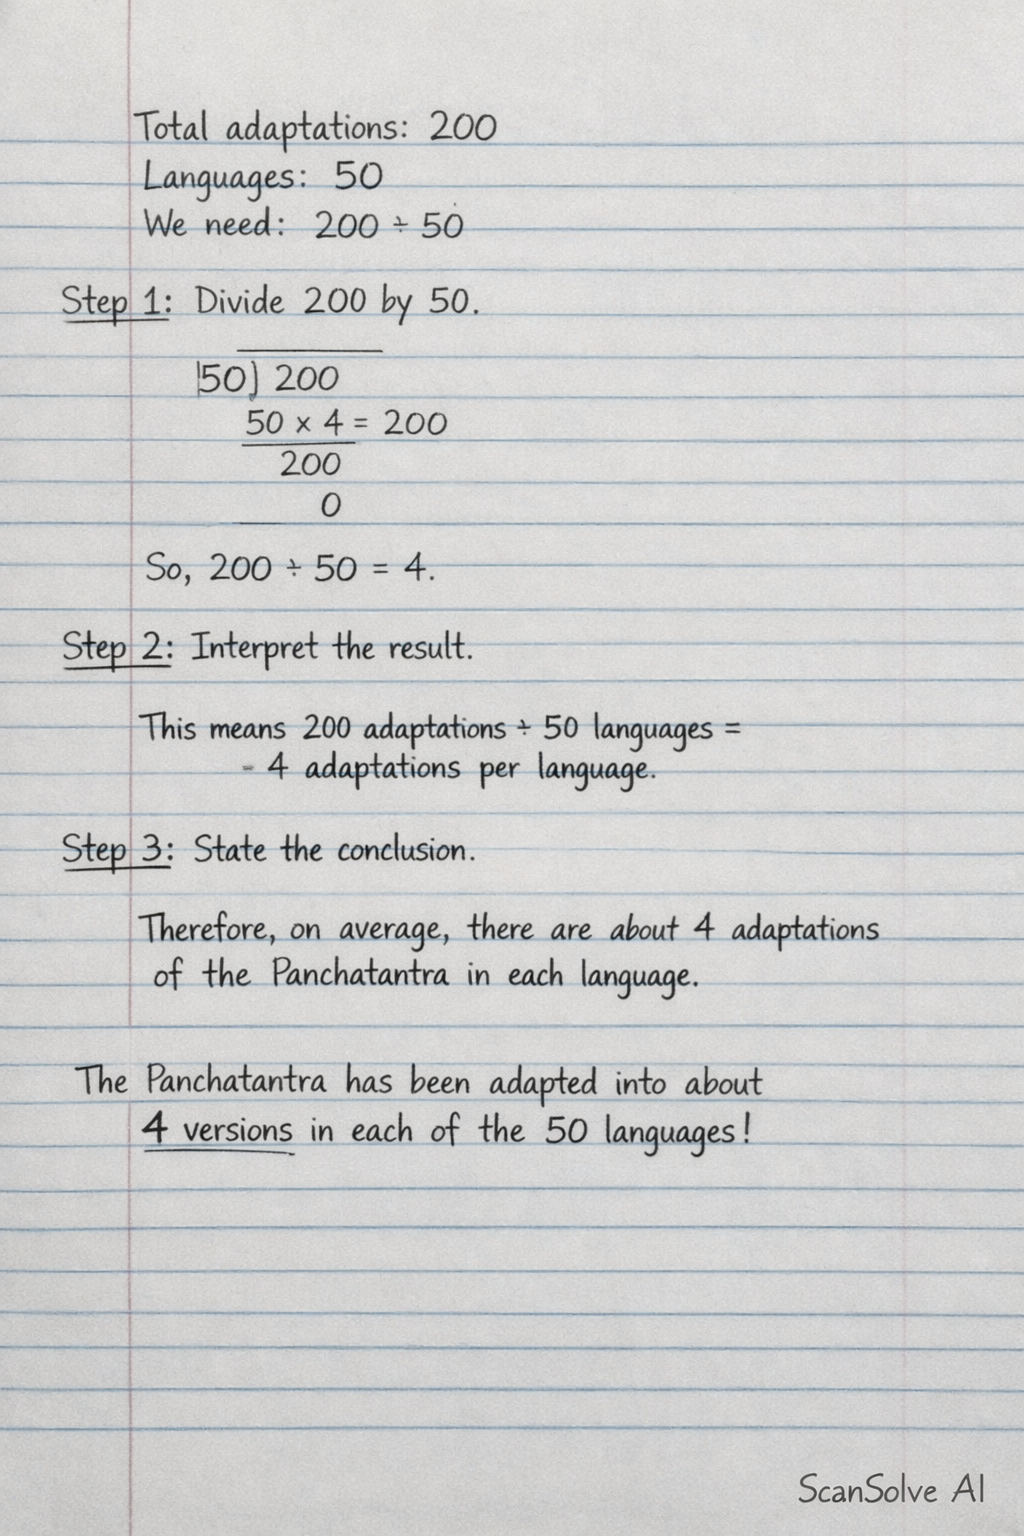 Total adaptations: 200
Languages: 50
We need: 200 ÷ 50
Step 1: Divide 200 by 50.
50) 200
50 × 4 = 200
200
0
So, 200 ÷ 50 = 4.
Step 2: Interpret the result.
This means 200 adaptations ÷ 50 languages =
- 4 adaptations per language.
Step 3: State the conclusion.
Therefore, on average, there are about 4 adaptations
of the Panchatantra in each language.
The Panchatantra has been adapted into about
4 versions in each of the 50 languages!
ScanSolve AI